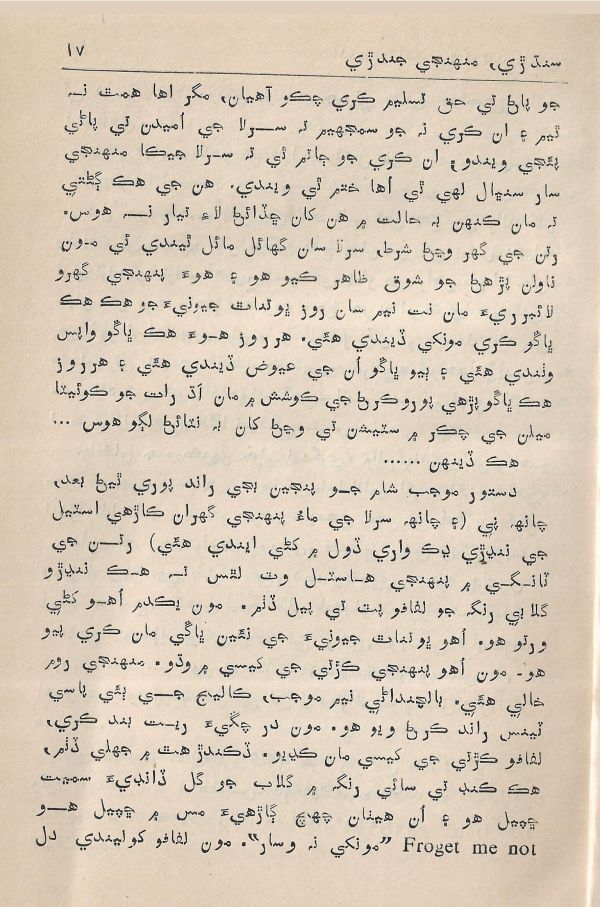 سنڌڙي، منهنجي جندڙي ١٧
جو پاڻ تي حق تسليم ڪري چڪو آهيان، مگر اها همت نہ
ٿيم ۽ ان ڪري نہ جو سمجهيم تہ سرلا جي اُميدن تي پاڻي
پئجي ويندو، ان ڪري جو ڄاتم ٿي تہ سرلا جيڪا منهنجي
سار سنڀال لهي ٿي اُها ختم ٿي ويندي. هن جي هڪ ڳڻتي
تہ مان ڪنهن بہ حالت ۾ هن کان ڇڏائڻ لاءِ تيار نہ هوس.
رتن جي گهر وڃڻ شرط، سرلا سان گهائل مائل ٿيندي ئي مون
ناولن پڙهڻ جو شوق ظاهر ڪيو هو ۽ هوءَ پنهنجي گهرو
لائبرريءَ مان نت نيم سان روز ڀوتنات جيونيءَ جو هڪ هڪ
ڀاڱو ڪري مونکي ڏيندي هئي. هر روز هوءَ هڪ ڀاڱو واپس
وٺندي هئي ۽ ٻيو ڀاڱو اُن جي عيوض ڏيندي هئي ۽ هر روز
هڪ ڀاڱو پڙهي پورو ڪرڻ جي ڪوشش ۾ مان اڌ رات جو ڪوئيٽا
ميلن جي چڪر ۾ سٽيشن تي وڃڻ کان بہ نٽائڻ لڳو هوس ...
هڪ ڏينهن ......
دستور موجب شام جو پنجين بجي راند پوري ٿيڻ بعد،
چانهہ پي (۽ چانهہ سرلا جي ماءُ پنهنجي گهران ڪاڙهي اسٽيل
جي ننڍڙي ڍڪ واري ڏول ۾ کڻي ايندي هئي) رتن جي
ٽانگي ۾ پنهنجي هاسٽل وٽ لٿس تہ هڪ ننڍڙو
گلابي رنگہ جو لفافو پٽ تي پيل ڏٺم. مون يڪدم اُهو کڻي
ورتو هو. اُهو ڀوتنات جيونيءَ جي نئين ڀاڱي مان ڪري پيو
هو. مون اُهو پنهنجي ڪڙتي جي کيسي ۾ وڌو. منهنجي روم
خالي هئي. بالچنداڻي نيم موجب، ڪاليج جي ٻئي پاسي
ٽينس راند ڪرڻ ويو هو. مون در چڱيءَ ريت بند ڪري،
لفافو ڪڙتي جي کيسي مان ڪڍيو. ڏڪندڙ هٿ ۾ جهلي ڏٺم،
هڪ ڪنڊ تي سائي رنگہ ۾ گلاب جو گل ڏانڊيءَ سميت
ڇپيل هو ۽ اُن هيٺان چهچ ڳاڙهيءَ مس ۾ ڇپيل هو
Froget me not ”مونکي نہ وسار“. مون لفافو کوليندي دل